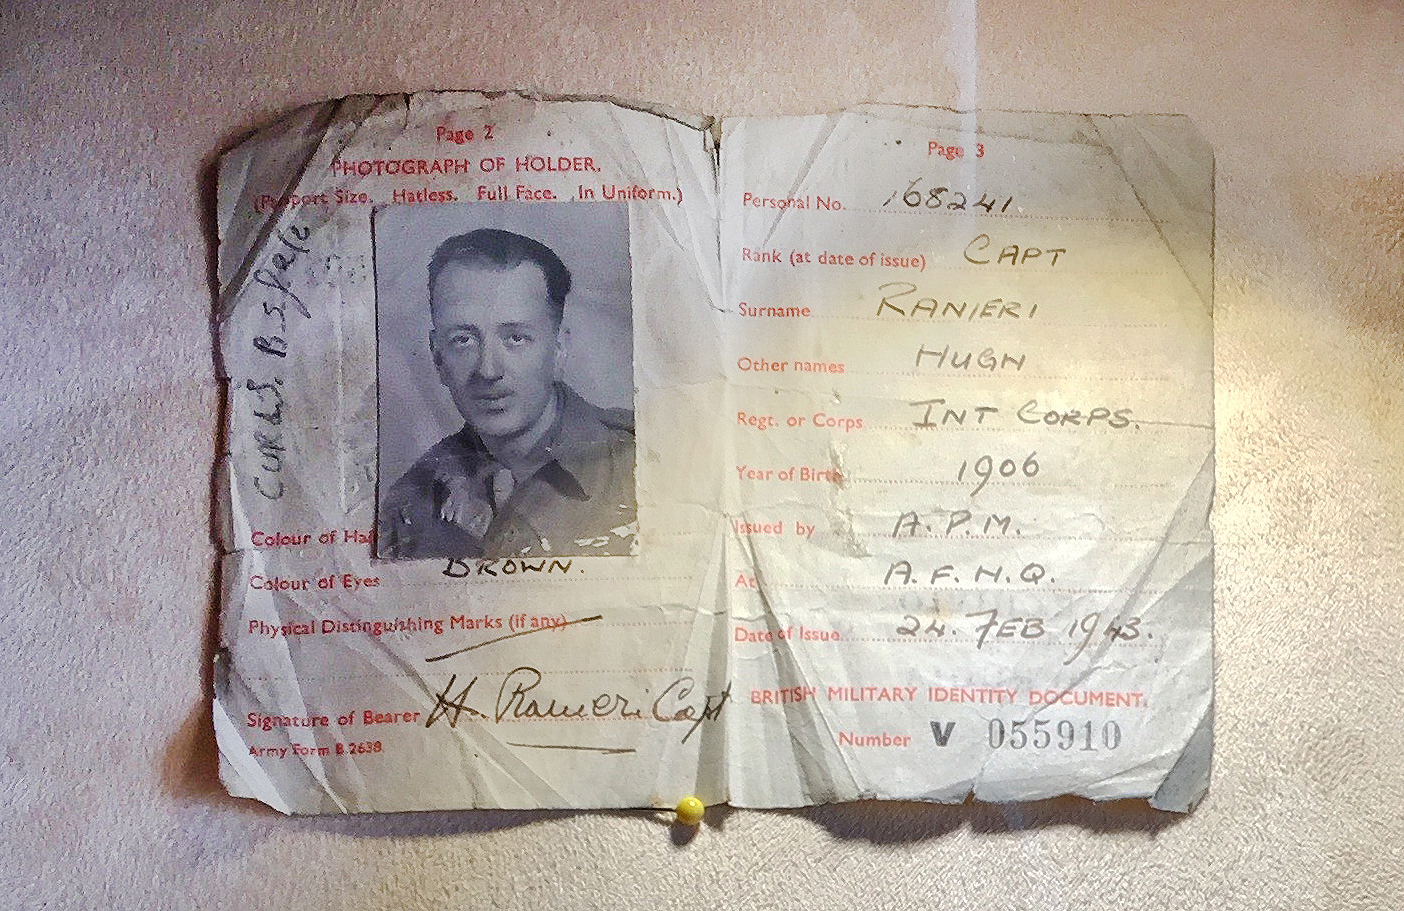 Page 2
PHOTOGRAPH OF HOLDER.
(Passport Size. Hatless. Full Face. In Uniform.)
Colour of Hair
Colour of Eyes BROWN.
Physical Distinguishing Marks (if any)
Signature of Bearer H. Ranieri Capt
Army Form B.2638
Page 3
Personal No. 168241.
Rank (at date of issue) CAPT
Surname RANIERI
Other names HUGH
Regt. or Corps INT CORPS.
Year of Birth 1906
Issued by A.P.M.
At A.F.H.Q.
Date of Issue 24. FEB 1943.
BRITISH MILITARY IDENTITY DOCUMENT.
Number V 055910